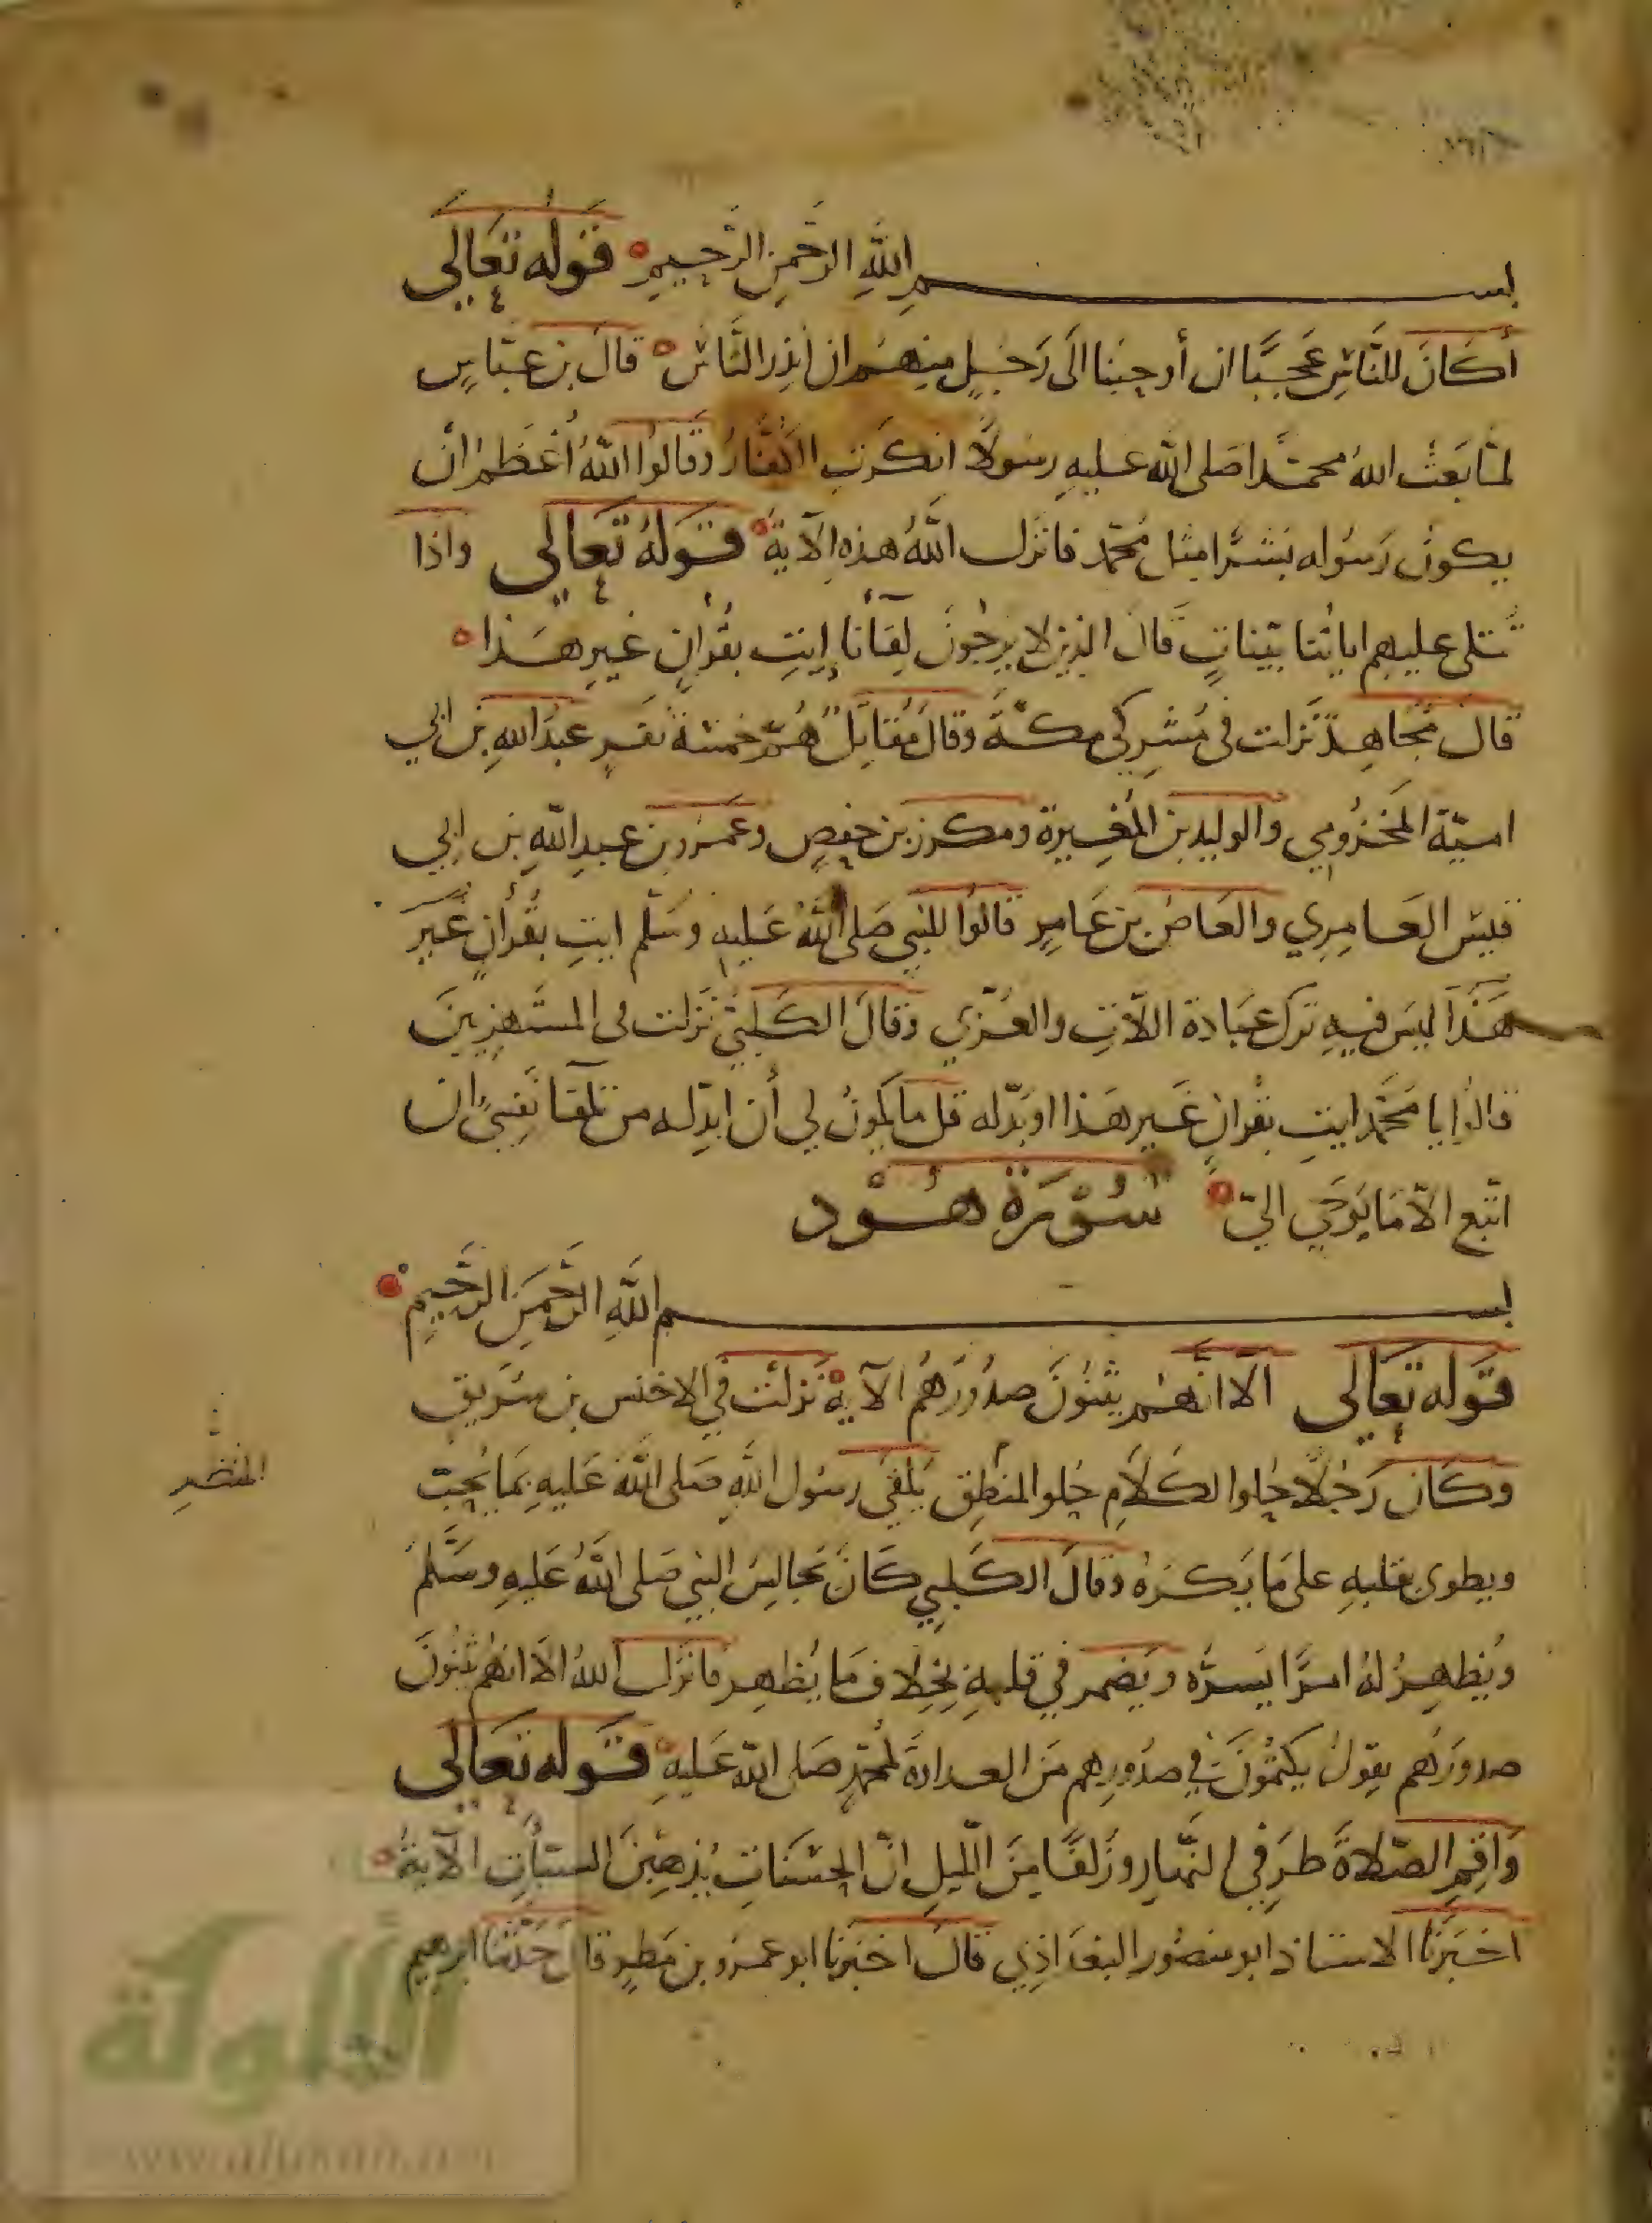 بسم الله الرحمن الرحيم قوله تعالى
أكان للناس عجبا ان أوحينا الى رجل منهم ان انذر الناس قال بن عباس
لما بعث الله محمدا صلى الله عليه رسولا انكرت الكفار وقالوا الله أعظم ان
يكون رسوله بشرا مثل محمد فانزل الله هذه الآية قوله تعالى واذا
تتلى عليهم اياتنا بينات قال الذين لا يرجون لقآنا إيت بقرآن غير هذا
قال مجاهد نزلت في مشركي مكة وقال مقاتل هم خمسة نفر عبد الله بن ابي
امية المخزومي والوليد بن المغيرة ومكرز بن حفص وعمرو بن عبد الله بن ابي
قيس العامري والعاص بن عامر قالوا للنبي صلى الله عليه وسلم ايت بقرآن غير
هذا ليس فيه ترك عبادة اللات والعزي وقال الكلبي نزلت في المستهزيين
قالوا يا محمد ايت بقران غير هذا او بدله قل ما يكون لي أن ابدله من تلقآ نفسي ان
اتبع الا ما يوحي الي سورة هود
بسم الله الرحمن الرحيم
قوله تعالى الا انهم يثنون صدورهم الآية نزلت في الاخنس بن شريق
وكان رجلا حلوا الكلام حلو المنطق يلقى رسول الله صلى الله عليه بما يحب
المنظر
ويطوى بقلبه على ما يكره وقال الكلبي كان يجالس النبي صلى الله عليه وسلم
ويظهر له امرا يسره ويضمر في قلبه بخلاف ما يظهر فانزل الله الا انهم يثنون
صدورهم يقول يكتمون في صدورهم من العداوة لمحمد صلى الله عليه قوله تعالى
واقم الصلاة طرفي النهار وزلفا من الليل ان الحسنات يذهبن السيئات الآية
اخبرنا الاستاذ ابو منصور البغداذي قال اخبرنا ابو عمرو بن مطر قال حدثنا ابرهيم
الألوكة
www.alukah.net